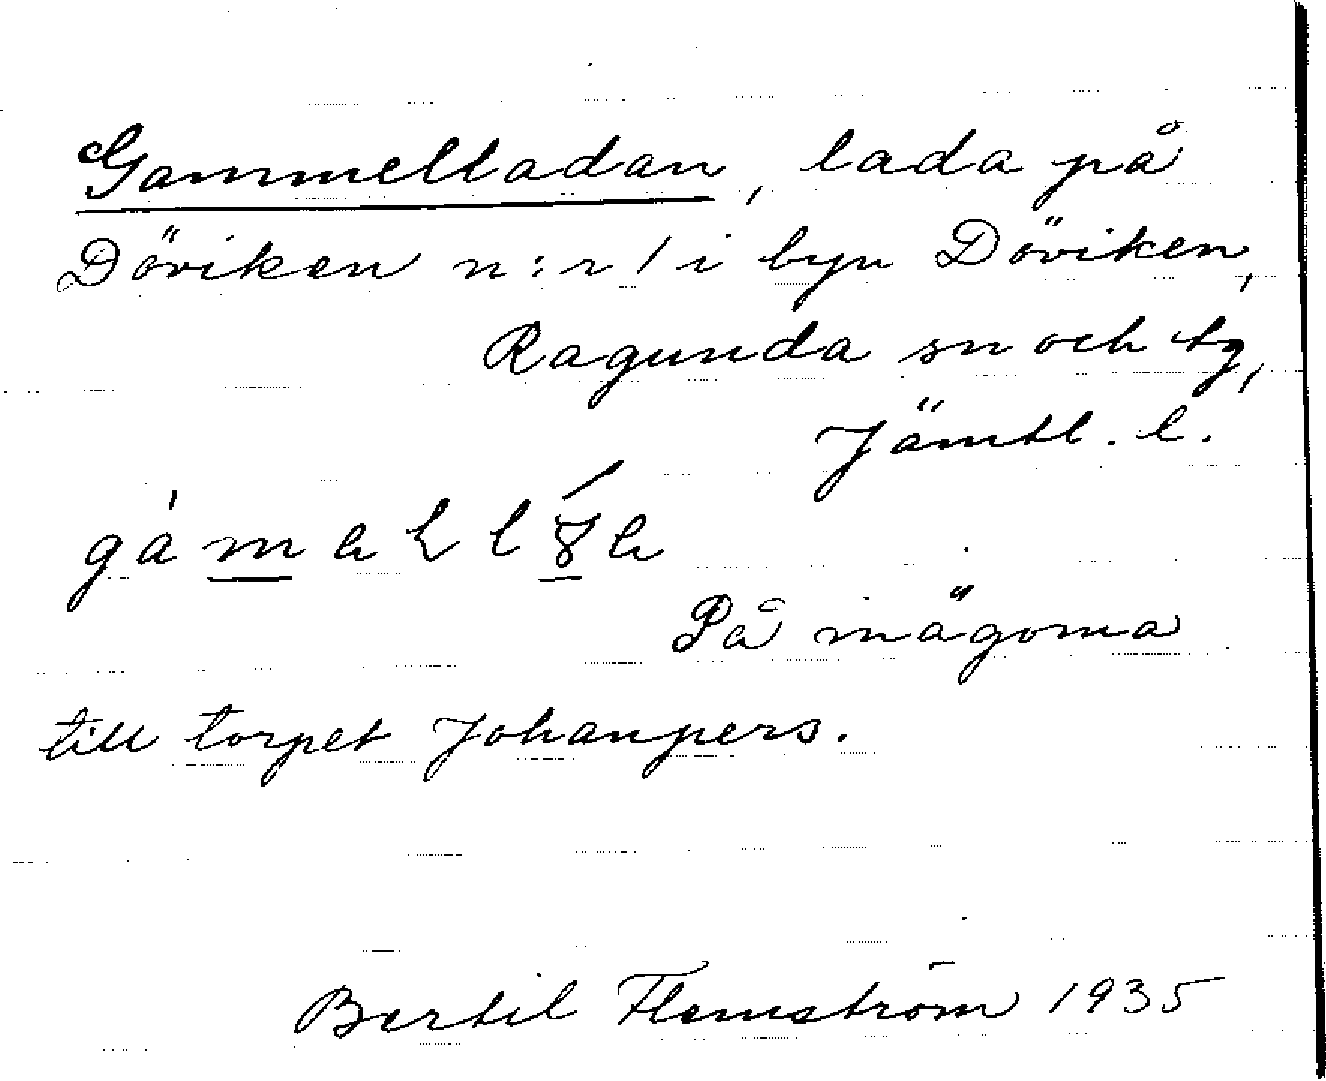 Gammelladan, lada på
Döviken n:r 1 i byn Döviken,
Ragunda sn och tg,
Jämtl. l.
På inägorna
till torpet Johanpers.
Bertil Flemström 1935